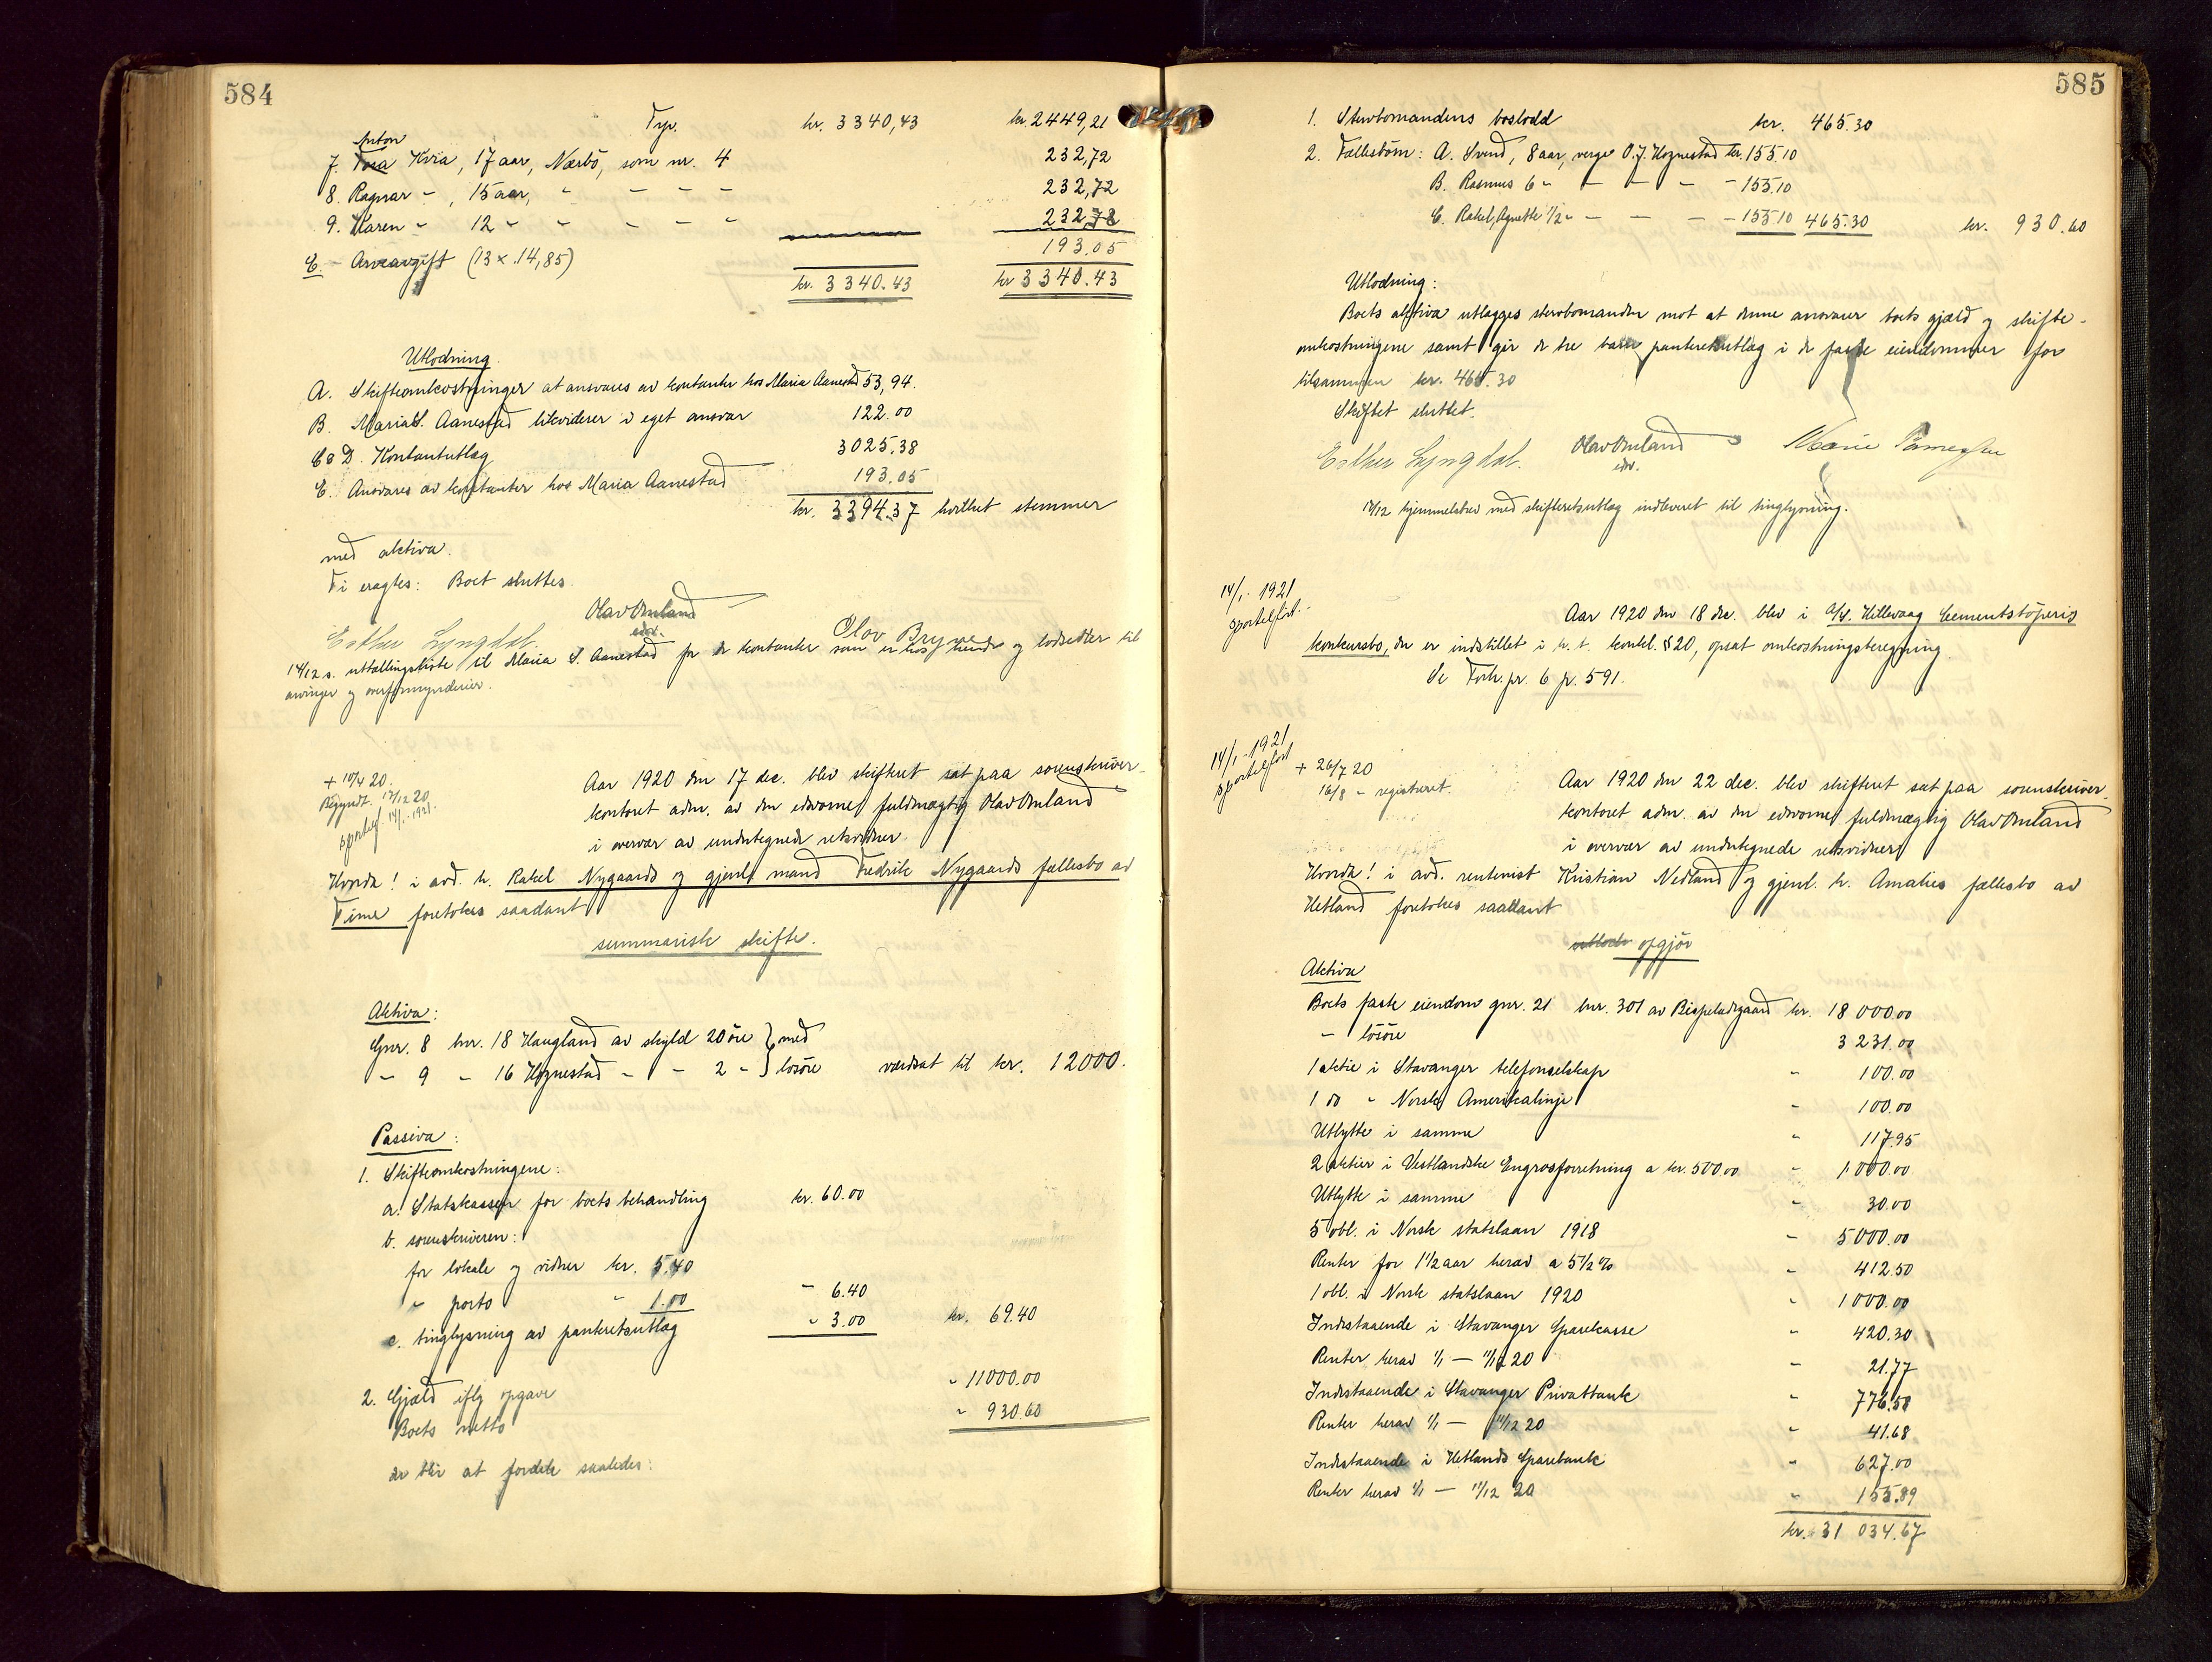 584
Trp. kr. 3340,43 kr. 2449,21
Anton
7. Tora Kvia, 17 aar, Nærbö, som nr. 4 232,72
8. Ragnar - , 15 aar, " - - - 232,72
9. Karen - 12 - - - - - 232,72
E. Arveavgift (13 x 14,85) 193.05
kr. 3340.43 kr 3340.43
Utlodning.
A. Skifteomkostninger at ansvares av kontanter hos Maria Aanestad 53,94.
B. Maria S. Aanestad likviderer i eget ansvar 122.00
C & D. Kontantutlæg 3025.38
E. Ansvares av kontanter hos Maria Aanestad 193.05
kr. 3394.37 hvilket stemmer
med aktiva.
Ti eragtes: Boet sluttes.
Olav Omland
edsv.
Esther Lyngdal. Olav Bryne
14/12 s. uttællingsliste til Maria S. Aanestad for de kontanter som er hos hende og lodsedler til
arvinger og overformynderier.
+ 10/4 20.
Begyndt. 17/12 20
sportelf. 14/1. 1921.
Aar 1920 den 17 dec. blev skifteret sat paa sorenskriver-
kontoret adm. av den edsvorne fuldmægtig Olav Omland
i overvær av undertegnede retsvidner.
Hvorda! i avd. h. Rakel Nygaards og gjenl. mand Fredrik Nygaards fællesbo av
Time foretokes saadant
summarisk skifte.
Aktiva:
Gnr. 8 bnr. 18 Haugland av skyld 20 öre } med
" 9 - 16 Hognestad - - 2 - } lösöre værdsat til kr. 12000.
Passiva:
1. Skifteomkostningene:
a. Statskassen for boets behandling kr. 60.00
b. sorenskriveren:
for lokale og vidner kr. 5.40
" porto " 1.00 - 6.40
c. tinglysning av panteretsutlæg " 3.00 kr. 69.40
2. Gjæld iflg opgave " 11000.00
Boets netto " 930.60
der blir at fordele saaledes:
585
1. Stervbomandens boslodd kr. 465.30
2. Fællesbörn: A. Svend, 8 aar, verge O. J. Hognestad kr. 155.10
B. Rasmus 6 - - - - - 155.10
C. Rakel, Agnethe 1/2 - - - - - 155.10 465.30 kr. 930.60
Utlodning:
Boets aktiva utlægges stervbomanden mot at denne ansvarer boets gjæld og skifte-
omkostningene samt gir de tre barn panteretsutlæg i de faste eiendommer for
tilsammen kr. 465.30
Skiftet sluttet.
Esther Lyngdal. Olav Omland Marie
edsv.
17/12 hjemmelsbrev med skifteretsutlæg indleveret til tinglysning.
14/1. 1921
sportelfört.
Aar 1920 den 18 dec. blev i A/S. Hillevaag Cementstöperis
konkursbo, der er indstillet i h. t. konkl. § 20, opsat omkostningsberegning.
Se Forh. pr. 6 p. 591.
14/1. 1921
sportelfört
+ 26/7 20
16/8 - registreret.
Aar 1920 den 22 dec. blev skifteret sat paa sorenskriver-
kontoret adm. av den edsvorne fuldmægtig Olav Omland
i overvær av undertegnede retsvidner.
Hvorda! i avd. rentenist Kristian Nedland og gjenl. h. Amalies fællesbo av
Hetland foretokes saadant
opgjör
Aktiva
Boets faste eiendom gnr. 21 bnr. 301 av Bispeladegaard kr. 18 000.00
- lösöre 3 231.00
1 aktie i Stavanger telefonselskap " 100.00
1 do " Norske Amerikalinje " 100.00
Utbytte i samme " 117.95
2 aktier i Vestlandske Engrosforretning a kr. 500.00 " 1 000.00
Utbytte i samme " 30.00
5 obl. i Norsk statslaan 1918 - 5 000.00
Renter for 1 1/2 aar herav a 5 1/2 % - 412.50
1 obl. i Norsk statslaan 1920 " 1 000.00
Indestaaende i Stavanger Sparekasse " 420.30
Renter herav 1/1 — 11/12 20 - 21.77
Indestaaende i Stavanger Privatbank " 776.58
Renter herav 1/1 — 11/12 20 " 41.68
Indestaaende i Hetlands Sparebank " 627.00
Renter herav 1/1 — 11/12 20 " 155.89
kr. 31 034.67